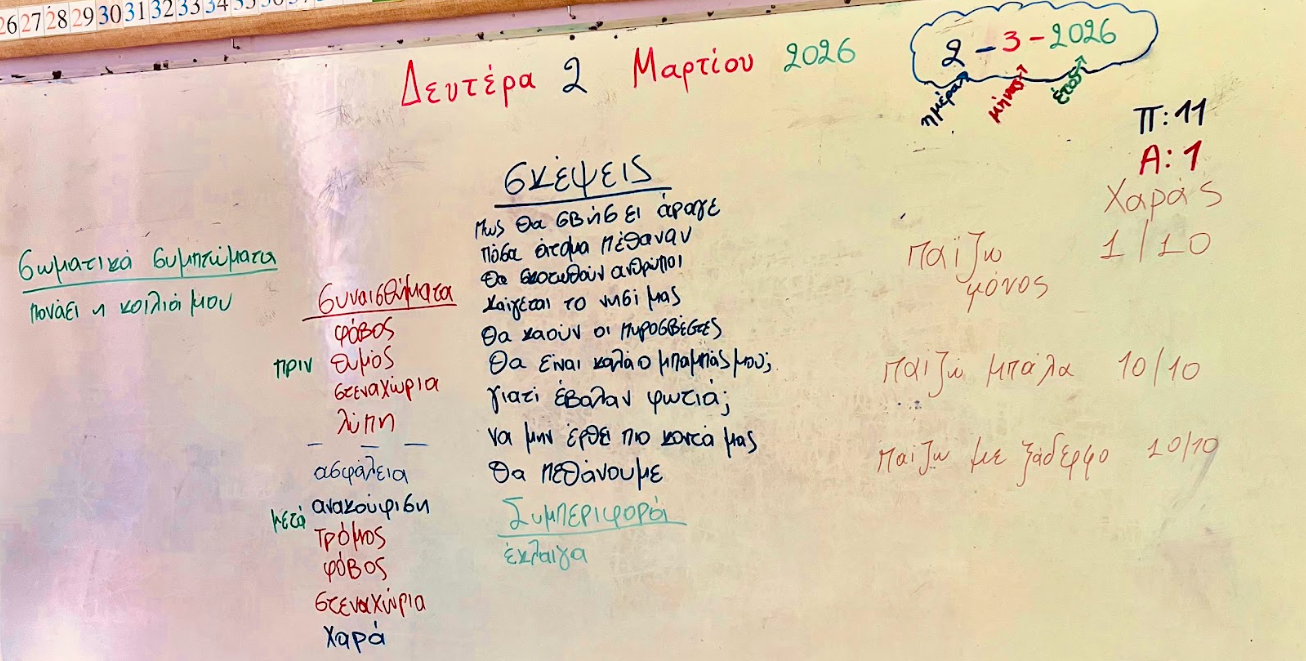 26 27 28 29 30 31 32 33 34 35 36
Δευτέρα 2 Μαρτίου 2026
2-3-2026
ημέρα μήνας έτος
Π:11
Α:1
Χαράς
παίζω μόνος 1/10
παίζω μπάλα 10/10
παίζω με ξάδερφο 10/10
σωματικά συμπτώματα
πονάει η κοιλιά μου
συναισθήματα
πριν
φόβος
θυμός
στεναχώρια
λύπη
μετά
ασφάλεια
ανακούφιση
τρόμος
φόβος
στεναχώρια
χαρά
σκέψεις
πως θα σβήσει άραγε
πόσα άτομα πέθαναν
θα σκοτωθούν ανθρώποι
καίγεται το νησί μας
θα καούν οι πυροσβέστες
θα είναι καλά ο μπαμπάς μου;
γιατί έβαλαν φωτιά;
να μην έρθε πιο κοντά μας
θα πεθάνουμε
Συμπεριφορά
έκλαιγα